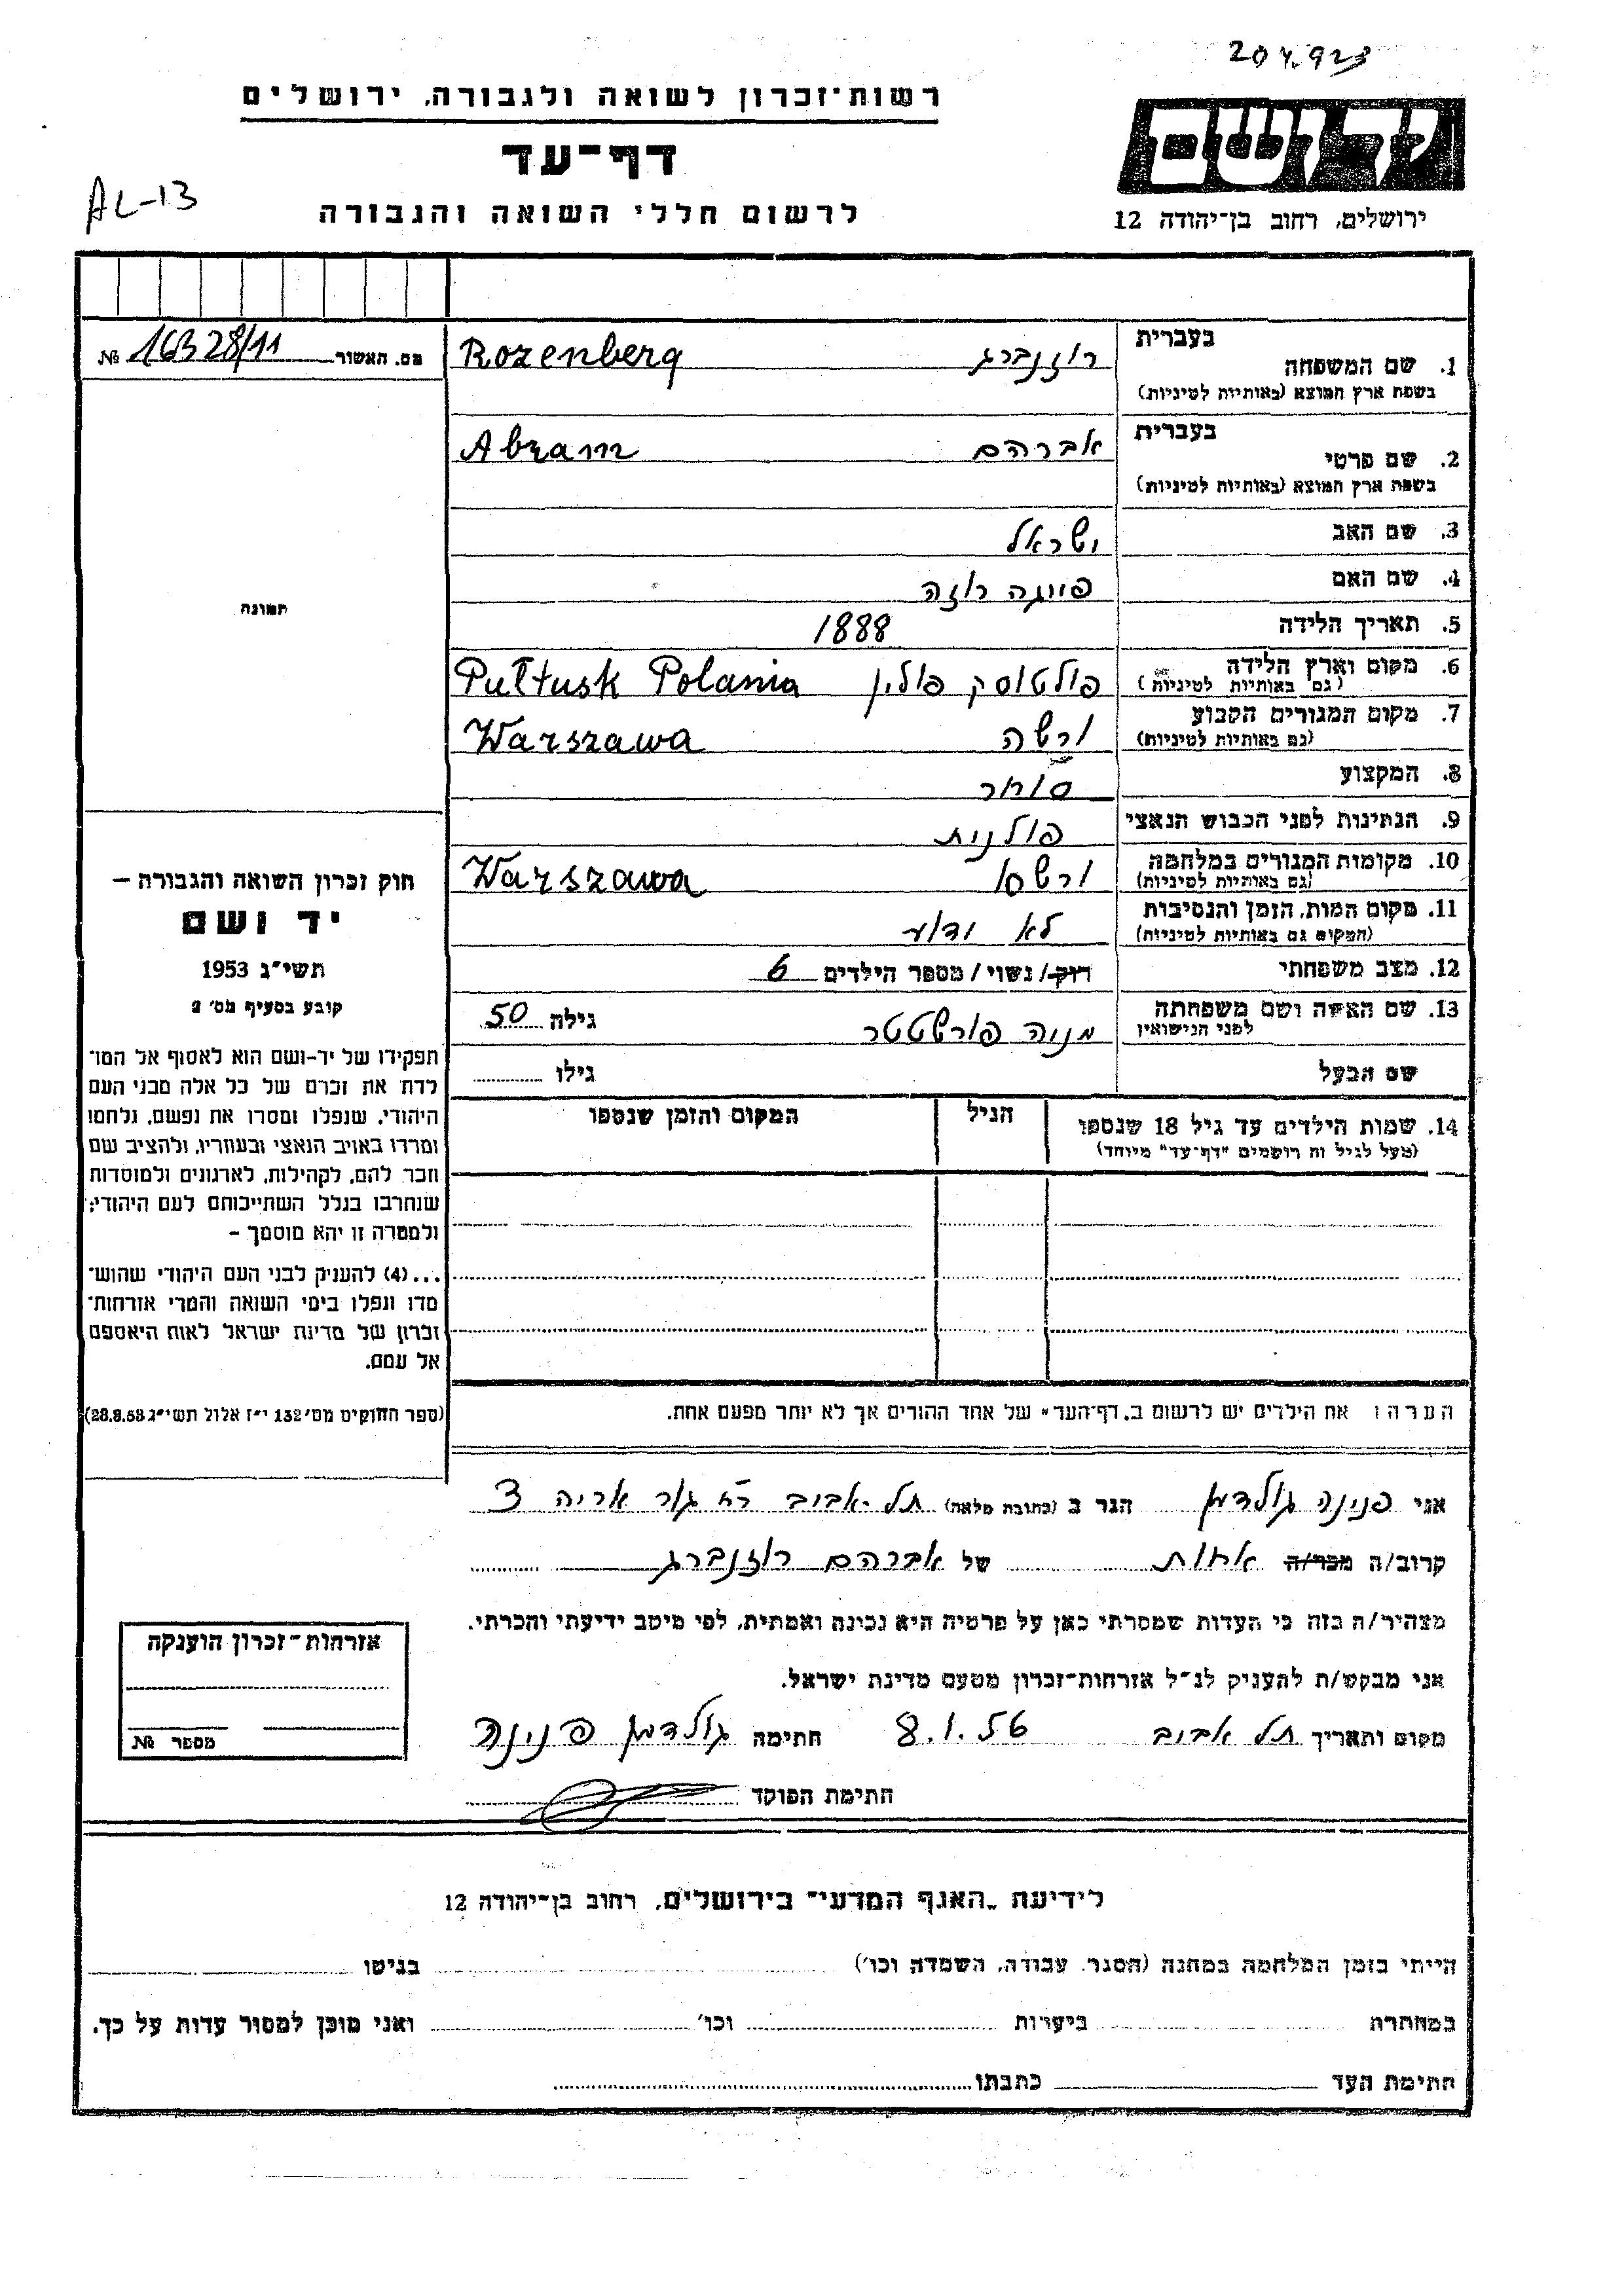 204923
רשות־זכרון לשואה ולגבורה, ירושלים
דף־עד
לרשום חללי השואה והגבורה
AL-13
יד ושם
ירושלים, רחוב בן־יהודה 12
מס. האשור № 16328/11
תמונה
חוק זכרון השואה והגבורה –
יד ושם
תשי״ג 1953
קובע בסעיף מס׳ 2
תפקידו של יד-ושם הוא לאסוף אל המו־
לדת את זכרם של כל אלה מבני העם
היהודי, שנפלו ומסרו את נפשם, נלחמו
ומרדו באויב הנאצי ובעוזריו, ולהציב שם
וזכר להם, לקהילות, לארגונים ולמוסדות
שנחרבו בגלל השתייכותם לעם היהודי;
ולמטרה זו יהא מוסמך –
...(4) להעניק לבני העם היהודי שהוש־
מדו ונפלו בימי השואה והמרי אזרחות־
זכרון של מדינת ישראל לאות היאספם
אל עמם.
(ספר החוקים מס׳ 132 י״ז אלול תשי״ג 28.8.53)
בעברית
1. שם המשפחה רוזנברג Rozenberg
בשפת ארץ המוצא (באותיות לטיניות)
בעברית
2. שם פרטי אברהם Abram
בשפת ארץ המוצא (באותיות לטיניות)
3. שם האב ישראל
4. שם האם פייגה רוזה
5. תאריך הלידה 1888
6. מקום וארץ הלידה פולטוסק פולין Pułtusk Polania
(גם באותיות לטיניות)
7. מקום המגורים הקבוע ורשה Warszawa
(גם באותיות לטיניות)
8. המקצוע סוחר
9. הנתינות לפני הכבוש הנאצי פולנית
10. מקומות המגורים במלחמה Warszawa
(גם באותיות לטיניות)
11. מקום המות, הזמן והנסיבות לא ידוע
(המקום גם באותיות לטיניות)
12. מצב משפחתי רוק/נשוי/מספר הילדים 6
13. שם האשה ושם משפחתה מניה פורשטטר גילה 50
לפני הנישואין
שם הבעל גילו
14. שמות הילדים עד גיל 18 שנספו הגיל המקום והזמן שנספו
(מעל לגיל זה רושמים "דף-עד" מיוחד)
הערה: את הילדים יש לרשום ב„דף־העד״ של אחד ההורים אך לא יותר מפעם אחת.
אני פנינה גולדמן הגר ב (כתובת מלאה) תל-אביב רח גור אריה 3
קרוב/ה מכר/ה אחות של אברהם רוזנברג
מצהיר/ה בזה כי העדות שמסרתי כאן על פרטיה היא נכונה ואמתית, לפי מיטב ידיעתי והכרתי.
אני מבקש/ת להעניק לנ״ל אזרחות־זכרון מטעם מדינת ישראל.
מקום ותאריך תל אביב 8.1.56 חתימה גולדמן פנינה
חתימת הפוקד
אזרחות־זכרון הוענקה
מספר №
לידיעת „האגף המדעי״ בירושלים, רחוב בן־יהודה 12
הייתי בזמן המלחמה במחנה (הסגר, עבודה, השמדה וכו׳) בגיטו
במחתרת ביערות וכו׳ ואני מוכן למסור עדות על כך.
חתימת העד כתבתו